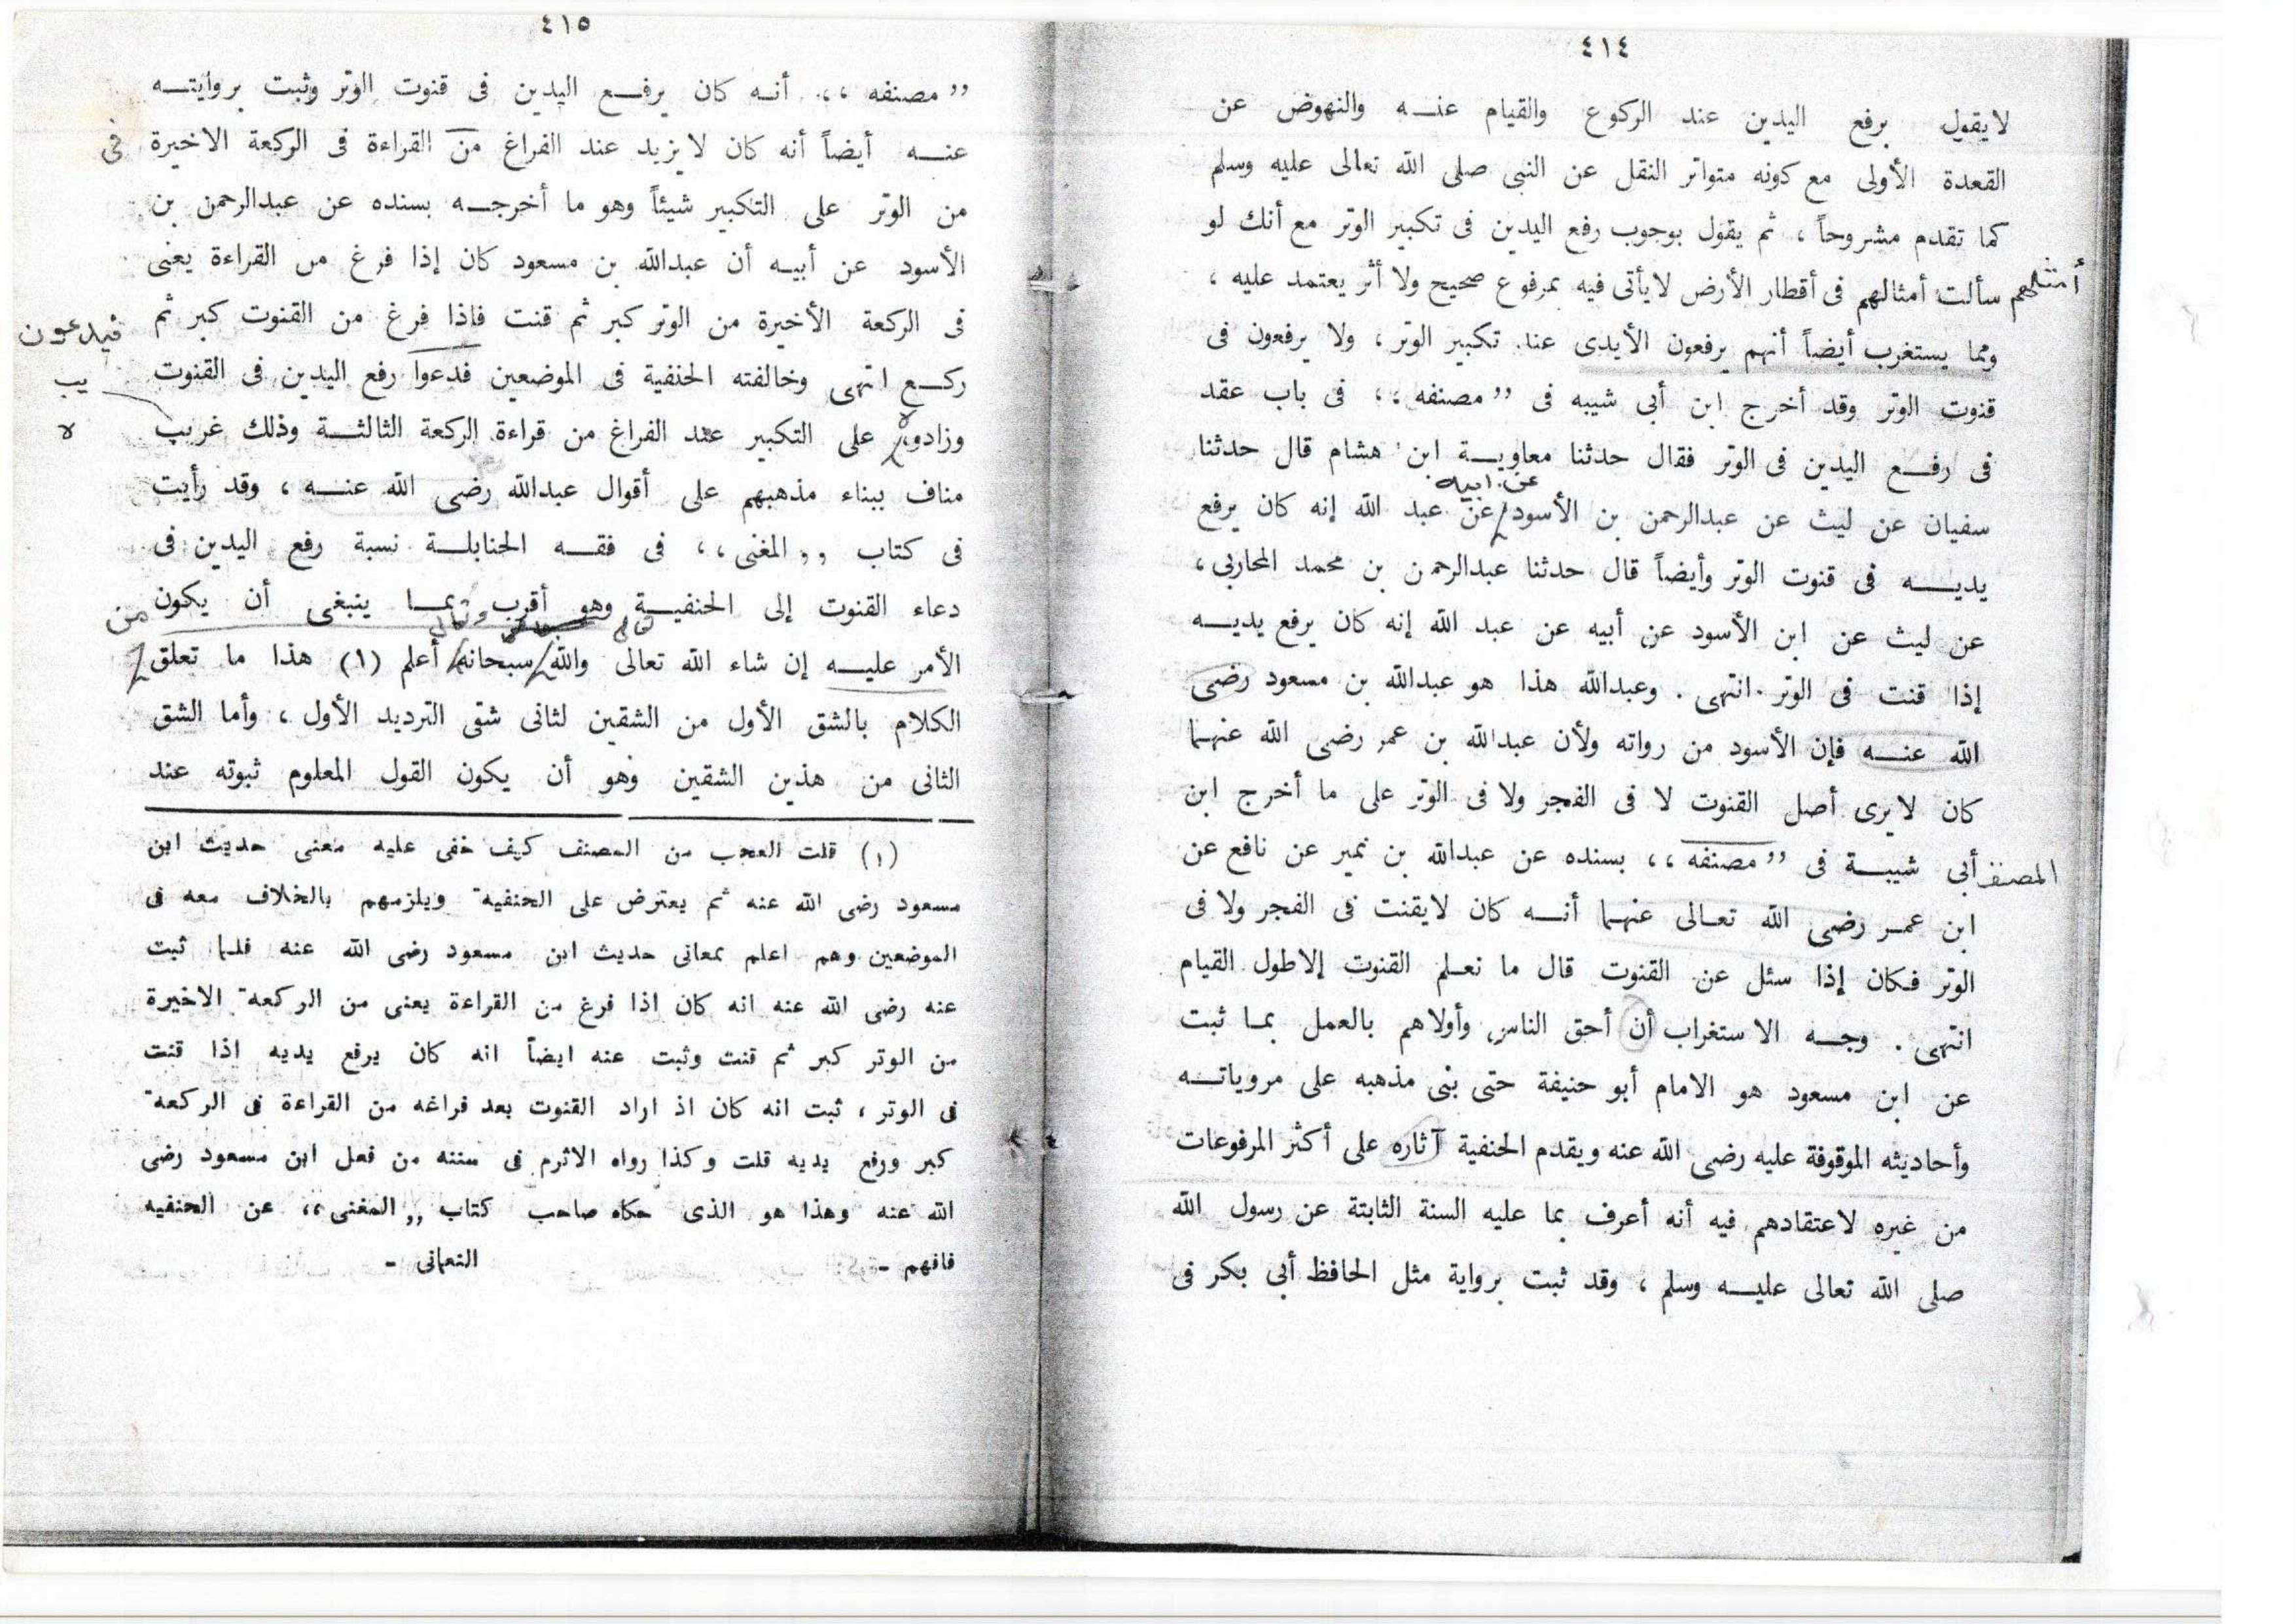 ٤١٤
لايقول برفع اليدين عند الركوع والقيام عنه والنهوض عن
القعدة الأولى مع كونه متواتر النقل عن النبى صلى الله تعالى عليه وسلم
كما تقدم مشروحاً ، ثم يقول بوجوب رفع اليدين فى تكبير الوتر مع أنك لو
سألت أمثالهم فى أقطار الأرض لايأتى فيه بمرفوع صحيح ولا أثر يعتمد عليه ،
أمثلهم
ومما يستغرب أيضاً أنهم يرفعون الأيدى عند تكبير الوتر ، ولا يرفعون فى
قنوت الوتر وقد أخرج ابن أبى شيبه فى ,, مصنفه ،، فى باب عقد
فى رفع اليدين فى الوتر فقال حدثنا معاوية ابن هشام قال حدثنا
عن ابيه
سفيان عن ليث عن عبدالرحمن بن الأسود عن عبد الله إنه كان يرفع
يديه فى قنوت الوتر وأيضاً قال حدثنا عبدالرحمن بن محمد المحاربى ،
عن ليث عن ابن الأسود عن أبيه عن عبد الله إنه كان يرفع يديه
إذا قنت فى الوتر . انتهى . وعبدالله هذا هو عبدالله بن مسعود رضى
الله عنه فإن الأسود من رواته ولأن عبدالله بن عمر رضى الله عنهما
كان لايرى أصل القنوت لا فى الفجر ولا فى الوتر على ما أخرج ابن
أبى شيبة فى ,, مصنفه ،، بسنده عن عبدالله بن نمير عن نافع عن
المصنف
ابن عمر رضى الله تعالى عنهما أنه كان لايقنت فى الفجر ولا فى
الوتر فكان إذا سئل عن القنوت قال ما نعلم القنوت إلاطول القيام
انتهى . وجه الاستغراب أن أحق الناس وأولاهم بالعمل بما ثبت
عن ابن مسعود هو الامام أبو حنيفة حتى بنى مذهبه على مروياته
وأحاديثه الموقوفة عليه رضى الله عنه ويقدم الحنفية آثاره على أكثر المرفوعات
من غيره لاعتقادهم فيه أنه أعرف بما عليه السنة الثابتة عن رسول الله
صلى الله تعالى عليه وسلم ، وقد ثبت برواية مثل الحافظ أبى بكر فى
٤١٥
,, مصنفه ،، أنه كان يرفع اليدين فى قنوت الوتر وثبت بروايته
عنه أيضاً أنه كان لايزيد عند الفراغ من القراءة فى الركعة الاخيرة
فى
من الوتر على التكبير شيئاً وهو ما أخرجه بسنده عن عبدالرحمن بن
الأسود عن أبيه أن عبدالله بن مسعود كان إذا فرغ من القراءة يعنى
فى الركعة الأخيرة من الوتر كبر ثم قنت فاذا فرغ من القنوت كبر ثم
فيدعون
ركع انتهى وخالفته الحنفية فى الموضعين فدعوا رفع اليدين فى القنوت
يب
وزادوا على التكبير عند الفراغ من قراءة الركعة الثالثة وذلك غريب
لا
مناف ببناء مذهبهم على أقوال عبدالله رضى الله عنه ، وقد رأيت
فى كتاب ,, المغنى ،، فى فقه الحنابلة نسبة رفع اليدين فى
دعاء القنوت إلى الحنفية وهو أقرب بما ينبغى أن يكون
من
وتعالى
الأمر عليه إن شاء الله تعالى والله سبحانه أعلم (١) هذا ما تعلق
الكلام بالشق الأول من الشقين لثانى شقى الترديد الأول ، وأما الشق
الثانى من هذين الشقين وهو أن يكون القول المعلوم ثبوته عند
(١) قلت العجب من المصنف كيف خفى عليه معنى حديث ابن
مسعود رضى الله عنه ثم يعترض على الحنفية ويلزمهم بالخلاف معه فى
الموضعين وهم اعلم بمعانى حديث ابن مسعود رضى الله عنه فلما ثبت
عنه رضى الله عنه انه كان اذا فرغ من القراءة يعنى من الركعة الاخيرة
من الوتر كبر ثم قنت وثبت عنه ايضاً انه كان يرفع يديه اذا قنت
فى الوتر ، ثبت انه كان اذ اراد القنوت بعد فراغه من القراءة فى الركعة
كبر ورفع يديه قلت وكذا رواه الاثرم فى سننه من فعل ابن مسعود رضى
الله عنه وهذا هو الذى حكاه صاحب كتاب ,, المغنى ،، عن الحنفيه
فافهم - النعمانى -